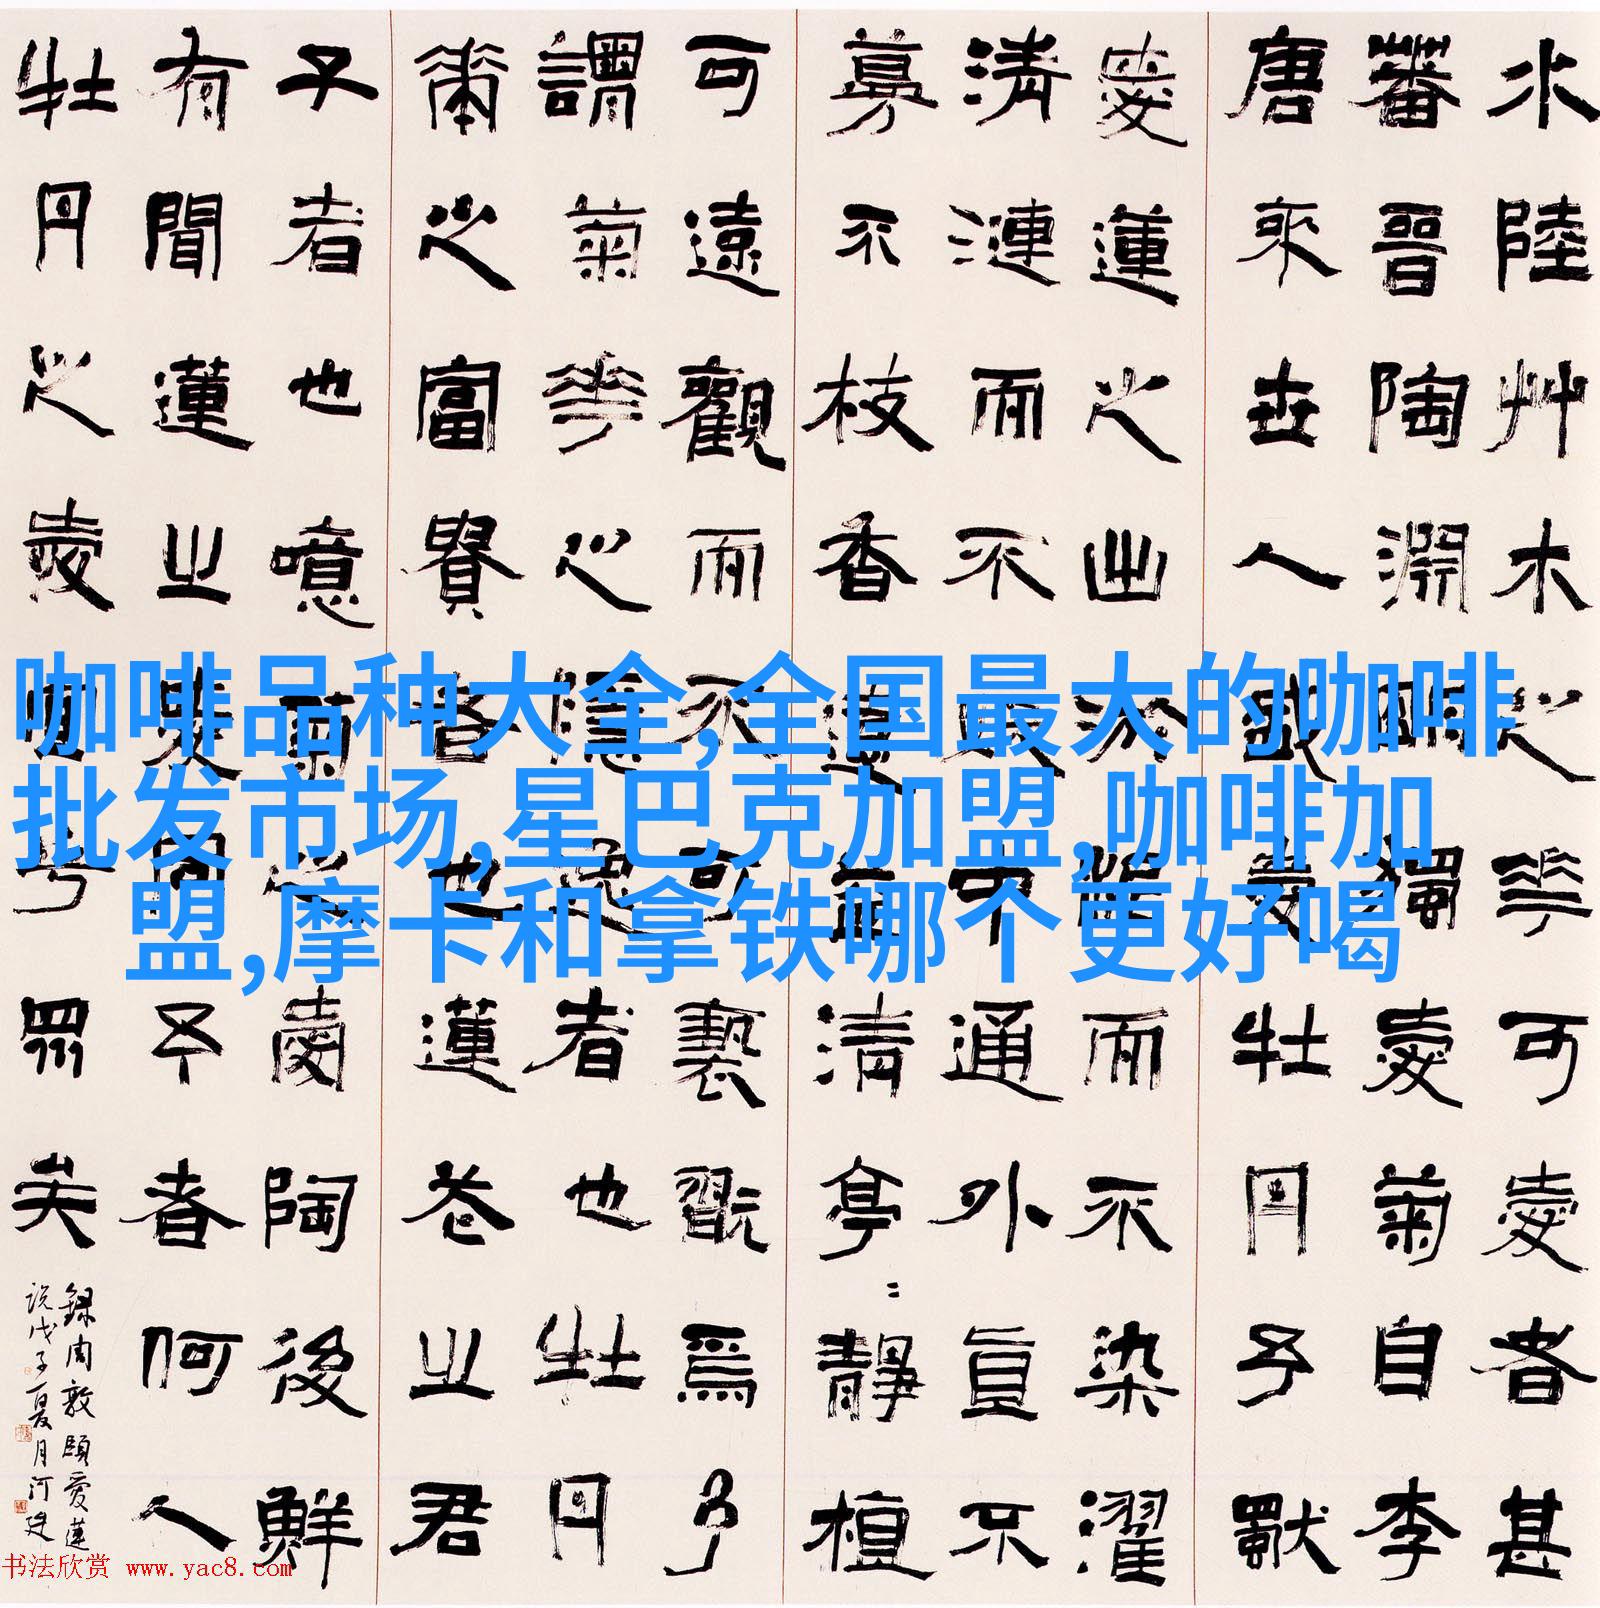 咖啡品种大全,全国最大的咖啡
批发市场,星巴克加盟,咖啡加
盟,摩卡和拿铁哪个更好喝
水陸艸木之華可愛者甚
蕃晉陶淵明獨愛菊自李
唐來世人盛愛牡丹予獨
愛蓮之出淤泥而不染濯
清漣而不妖中通外直不
蔓不枝香遠益清亭=靜植
可遠觀而不可褻翫焉予
謂菊華之隱逸者也牡丹
華之富貴者也蓮花之君
子者也噫菊之愛陶後鮮
有聞蓮之愛同予者何人
牡丹之愛宜乎眾矣
錄周敦頤愛蓮
說戊子夏月河建
书法欣赏 www.yac8.com